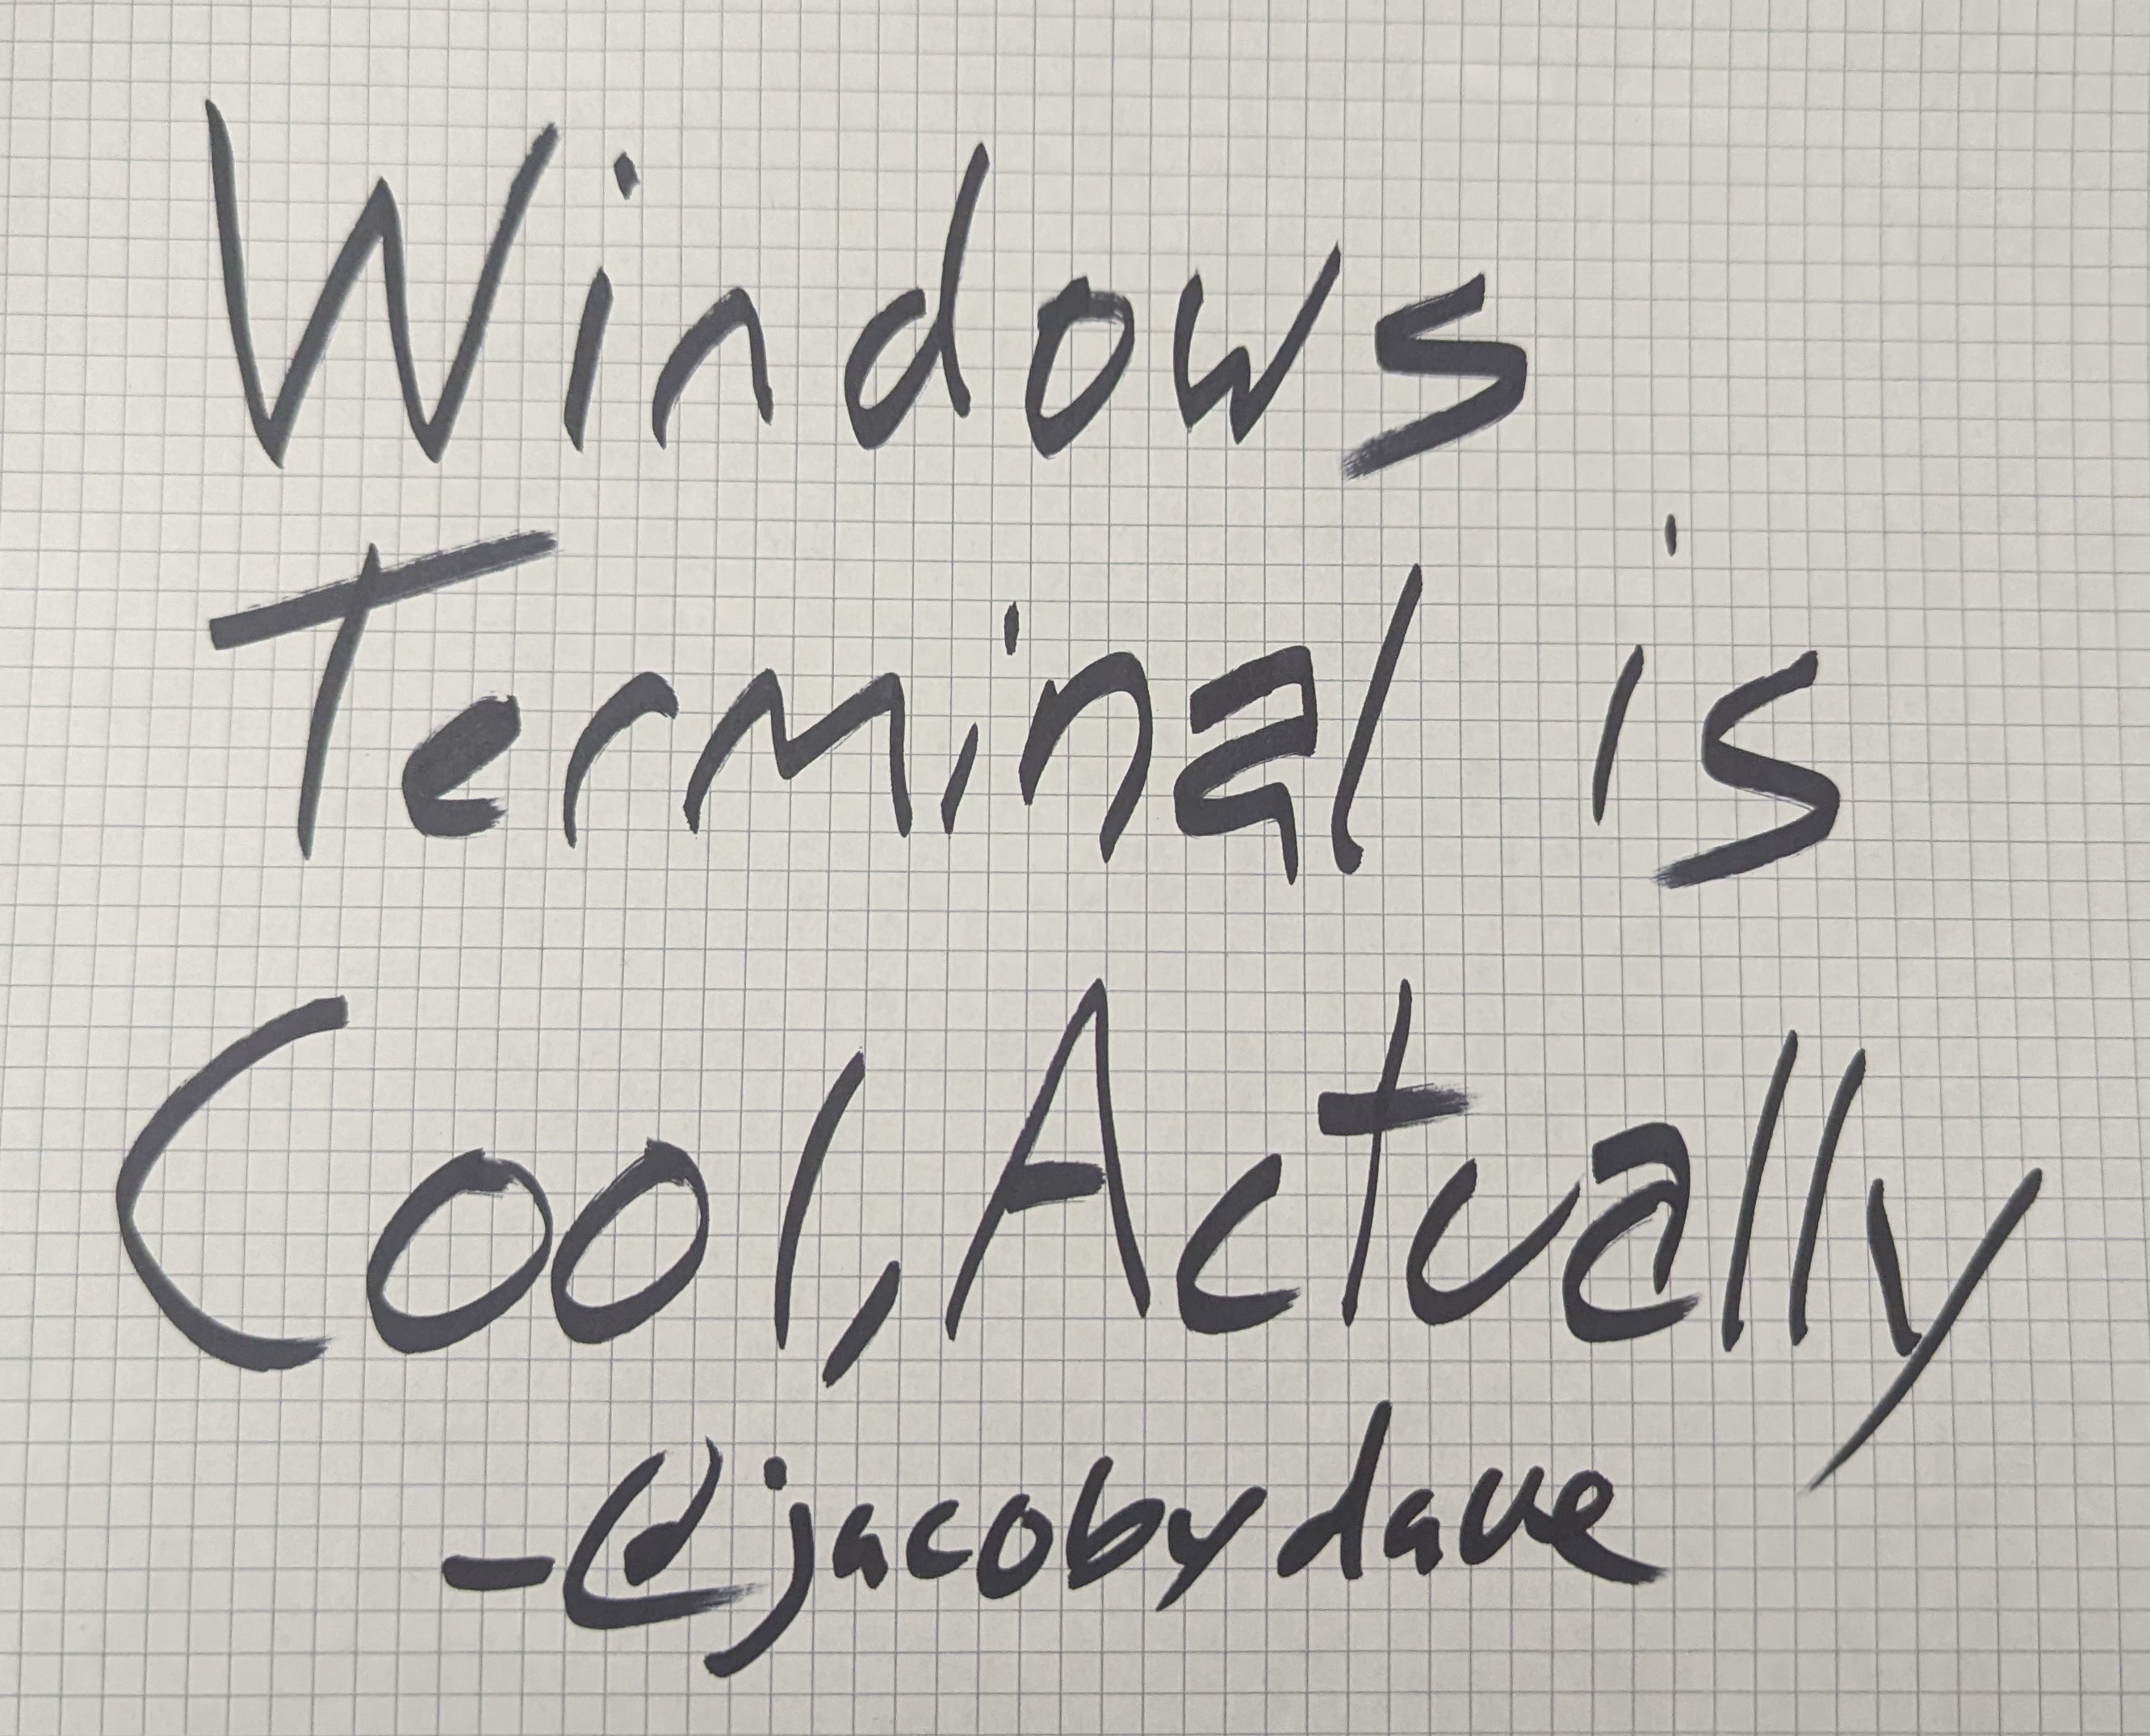 Windows
Terminal is
Cool, Actually
-@jacobydave